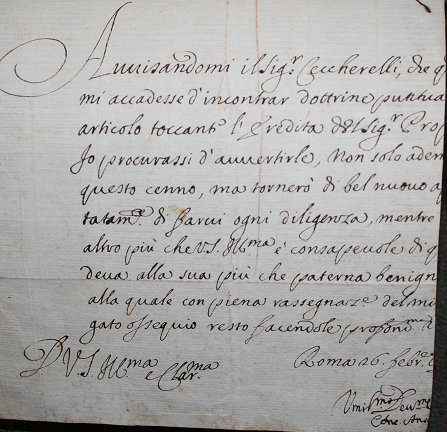 Avvisandomi il Sig.r Ceccherelli, che q
mi accadesse d'incontrar dottrine
articolo toccant.e l'Eredita del Sig.r Prop
Io procurassi d'avvertirle, Non solo adem
questo cenno, ma tornerò di bel nuovo a
di farvi ogni diligenza, mentre
altro più che V.S. Ill.ma è consapevole di q
deva alla sua più che paterna benign
alla quale con piena rassegnaz.e del mio
gato ossequio resto facendole
D V.S. Ill.ma e Clar.ma
Roma 26. febr.
Umil.mo Dev.mo